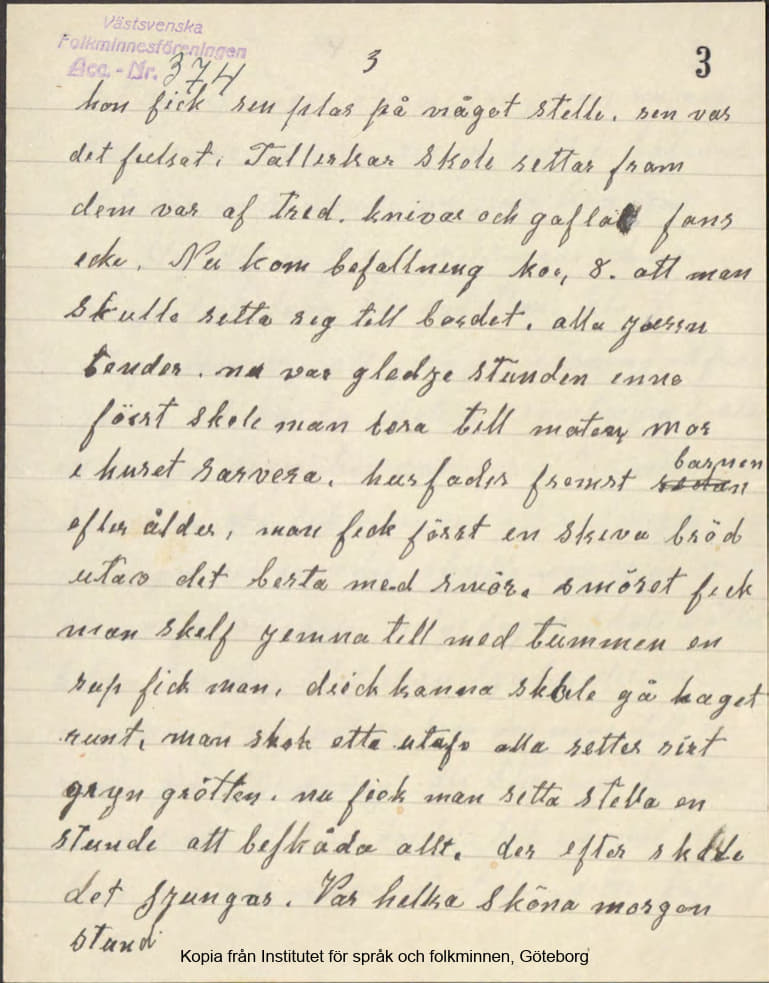 Västsvenska
Folkminnesföreningen
Acc.-Nr. 374
3
3
hon fick sen plas på något stelle. sen var
det fulsat. Tallerkar skole settas fram
dem var af tred. knivar och gaflar fans
eke. Nu kom befallneng kl, 8. att man
skulle setta seg till bordet. alla jusen
tender. nu var gledje stunden enne
först skole man bera till maten, mor
e huset sarvera. husfader fremst sedan barnen
efter ålder, man feck först en skeva bröd
utav det besta med smör. smöret feck
man skelf jemna till med tummen en
sup fick man, drickkanna skole gå laget
runt, man skok etta utafv alla retter sist
gryn grötten. nu fick man setta stella en
stunde att beskåda allt. der efter skole
det sjungas. Var helsa sköna morgon
stund
Kopia från Institutet för språk och folkminnen, Göteborg